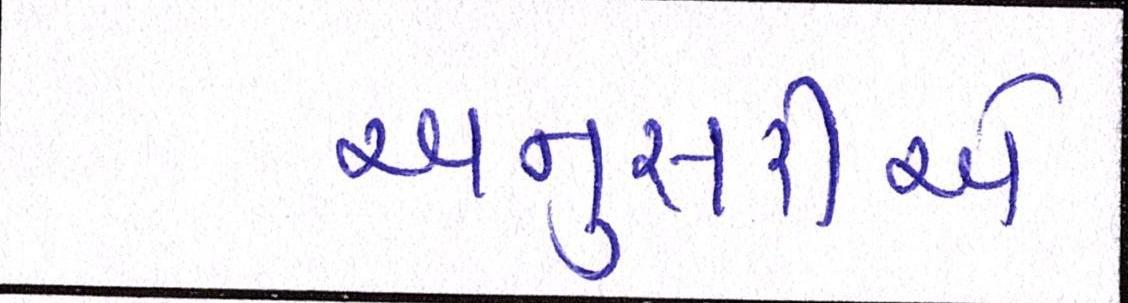 અનુસરીએ